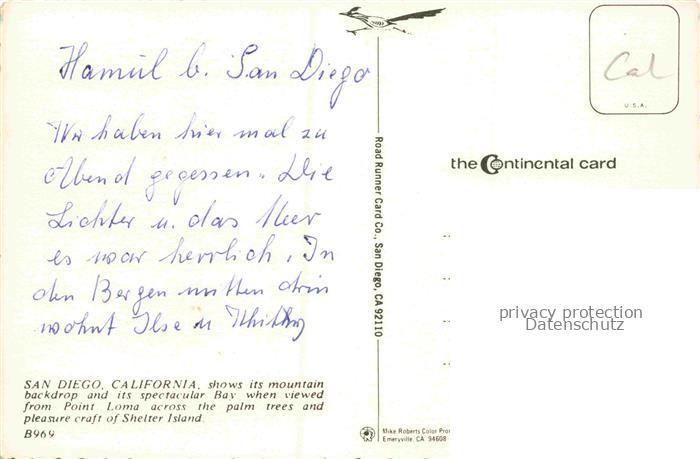 Hamul b. San Diego
Wir haben hier mal zu
Abend gegessen. Die
Lichter u. das Meer
es war herrlich. In
den Bergen mitten drin
wohnt Ilse u
SAN DIEGO, CALIFORNIA, shows its mountain
backdrop and its spectacular Bay when viewed
from Point Loma across the palm trees and
pleasure craft of Shelter Island.
B969
Road Runner Card Co., San Diego, CA 92110
Cal
U.S.A.
the Continental card
privacy protection
Datenschutz
Mike Roberts Color Pro
Emeryville, CA 94608